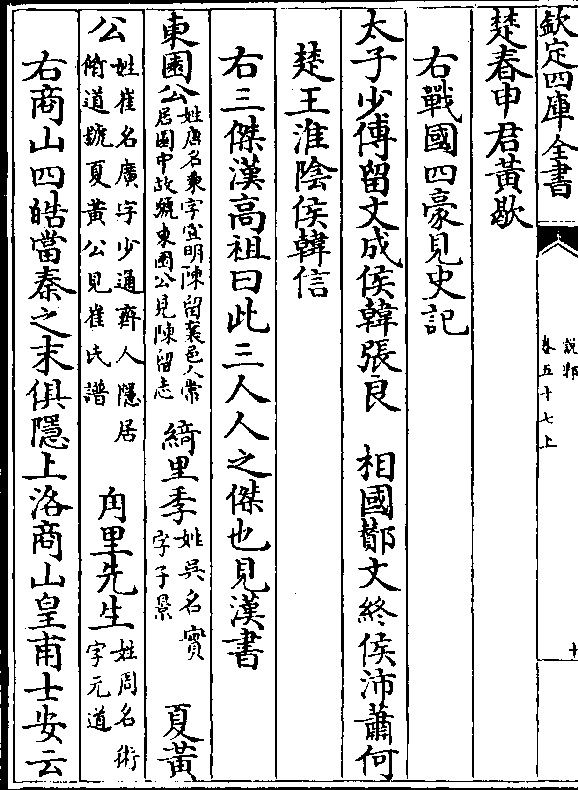 欽定四庫全書
說郛
卷五十七上
十
楚春申君黃歇
右戰國四豪見史記
太子少傅留文成侯韓張良　相國酇文終侯沛蕭何
楚王淮陰侯韓信
右三傑漢高祖曰此三人人之傑也見漢書
東園公姓唐名秉字宣明陳留襄邑人常居園中故號東園公見陳留志　綺里季姓吳名實字子景　夏黃
公姓崔名廣字少通齊人隱居脩道號夏黃公見崔氏譜　角里先生姓周名術字元道
右商山四皓當秦之末俱隱上洛商山皇甫士安云